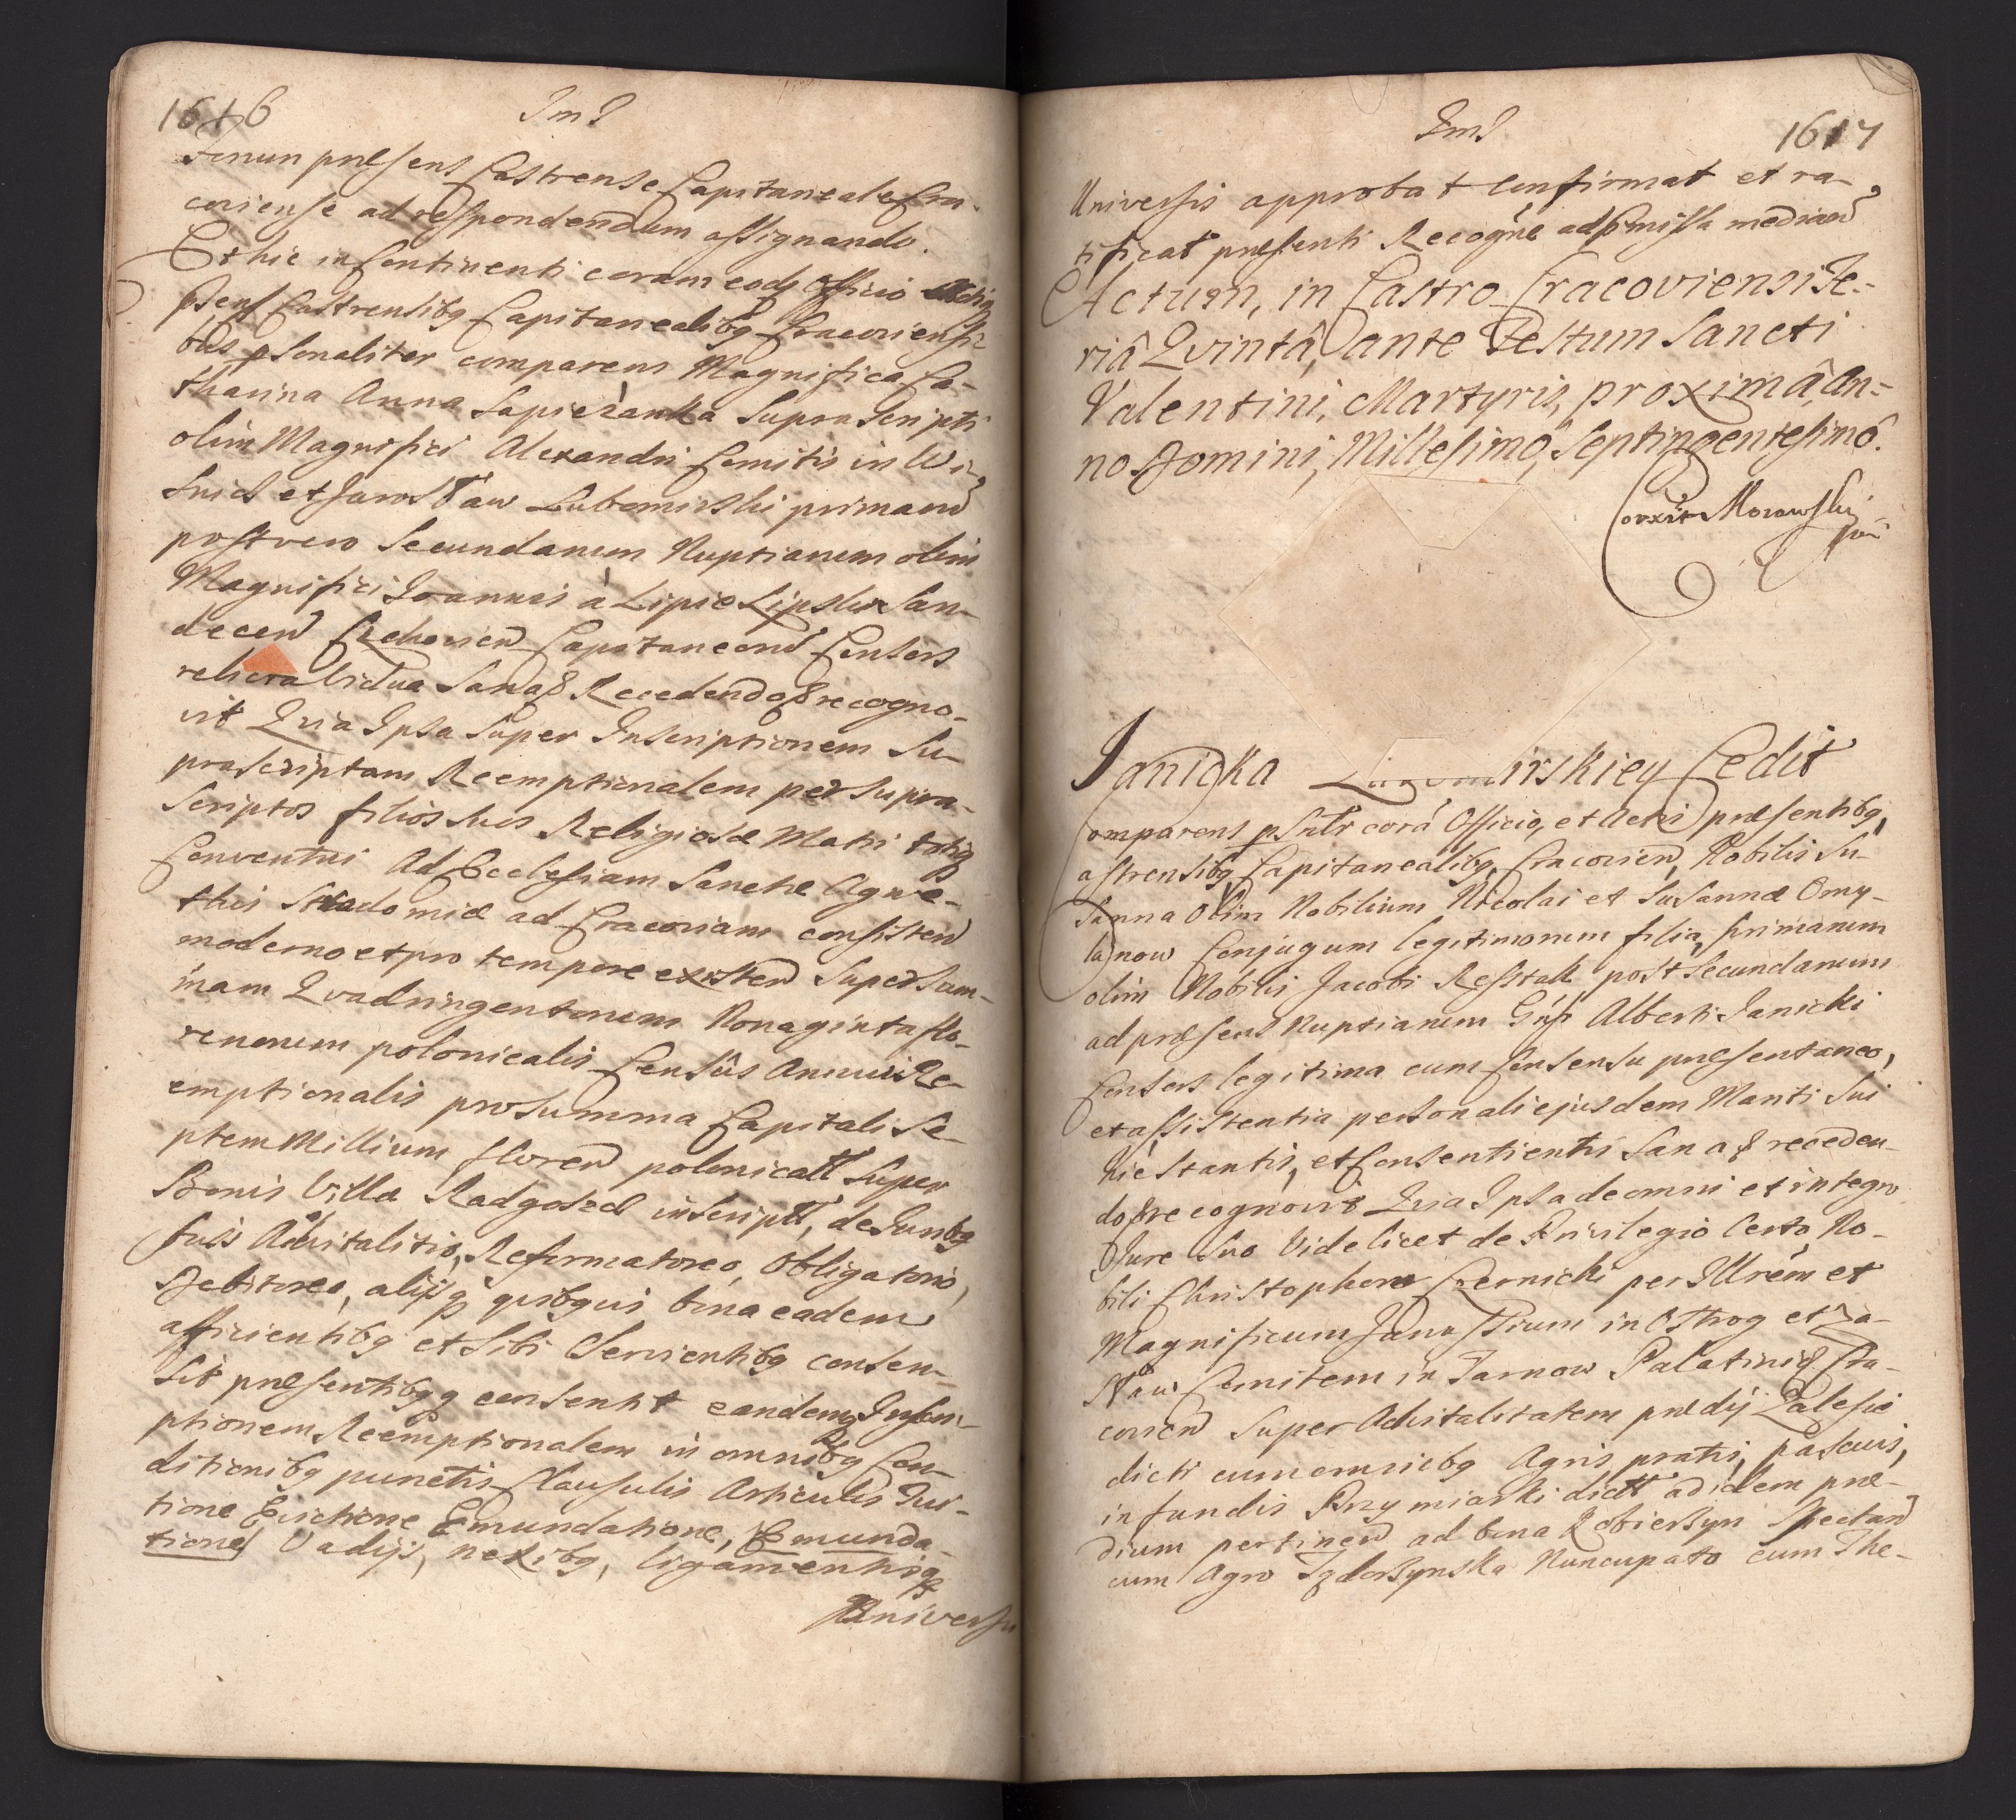 1616
Ims
Tenun præsens Castrense Capitaneale Cra-
coviense ad respondendum assignando.
Et hic in Continenti coram eodē Officio Actisq
psens Castrensibq Capitanealibq Cracoviensi-
bus psonaliter comparens Magnifica Ca-
tharina Anna Sapieżanka Supra Scripti
olim Magnifici Alexandri Comitis in Wi-
snicz et Jarosław Lubomirski primarū
post vero Secundarum Nuptiarum olim
Magnifici Joannis à Lipie Lipski San-
decen Czchovien Capitaneorū Consors
relicta Vidua Sana & Recedendo & recogno-
vit Qvia Ipsa Super Inscriptionem Su-
prascriptam Reemptionalem per supra-
Scriptos filios suos Religiosæ Matri totiq
Conventui Ad Ecclesiam Sanctæ Agne-
this Stradomiæ ad Cracoviam consisten
moderno et pro tempore existen Super Sum-
mam Qvadringentorum Nonaginta flo-
renorum polonicalis Censûs Annui Re-
emptionalis pro summa Capitali Se-
ptem Millium floren polonicall Super
Bonis Villæ Radgoszcz inscriptt, de Juribq
suis Advitalitio, Reformatorio, Obligatorio,
Debitorio, alijsq quibqvis bona eadem
afficientibq et Sibi Servientibq consen-
sit præsentibqq consentit eandemq Inscri-
ptionem Reemptionalem in omnibq Con-
ditionibq punctis Clausulis Articulis Jus-
tione Evictione Emundatione, Emunda-
tione Vadijs, nexibq, ligamentisq
Universis
Ims
1617
Universis approbat Confirmat et ra-
tificat præsenti Recogne ad præmissa median
Actum, in Castro Cracoviensi Fe-
riâ Qvintâ, ante Festum Sancti
Valentini, Martyris, proximâ, An-
no Domini, Millesimô, Septingentesimô.
Corxit Morawski
Janicka irskiey Cedit
Comparens psnlr corā Officio, et Actis præsentibq,
Castrensibq Capitanealibq, Cracovien, Nobilis Su-
sanna Olim Nobilium Nicolai et Susannæ Omy-
lanow Conjugum legitimorum filia, primarum
olim Nobilis Jacobi Resstak post Secundarum
ad præsens Nuptiarum Gnsi Alberti Janicki
Consors legitima cum Consensu præsentaneo,
et assistentia personali ejusdem Mariti Sui
hic Stantis, et Consentientis Sana & receden-
do & recognovit Qvia Ipsa de omni et integro
Jure Suo Videlicet de Privilegio Certo, No-
bili Christophoro Czernicki per Illrem et
Magnificum Janussium in Ostrog et Za-
sław Comitem in Tarnow Palatinū Cra-
covien Super Advitalitatem prædij Zalesie
dicti cum omnibq Agris pratis, pascuis,
in fundis Przymiarki dictt ad idem præ-
dium pertinen ad bona Zobierzyn Spectan
cum Agro Igdorzynska Nuncupato cum The-